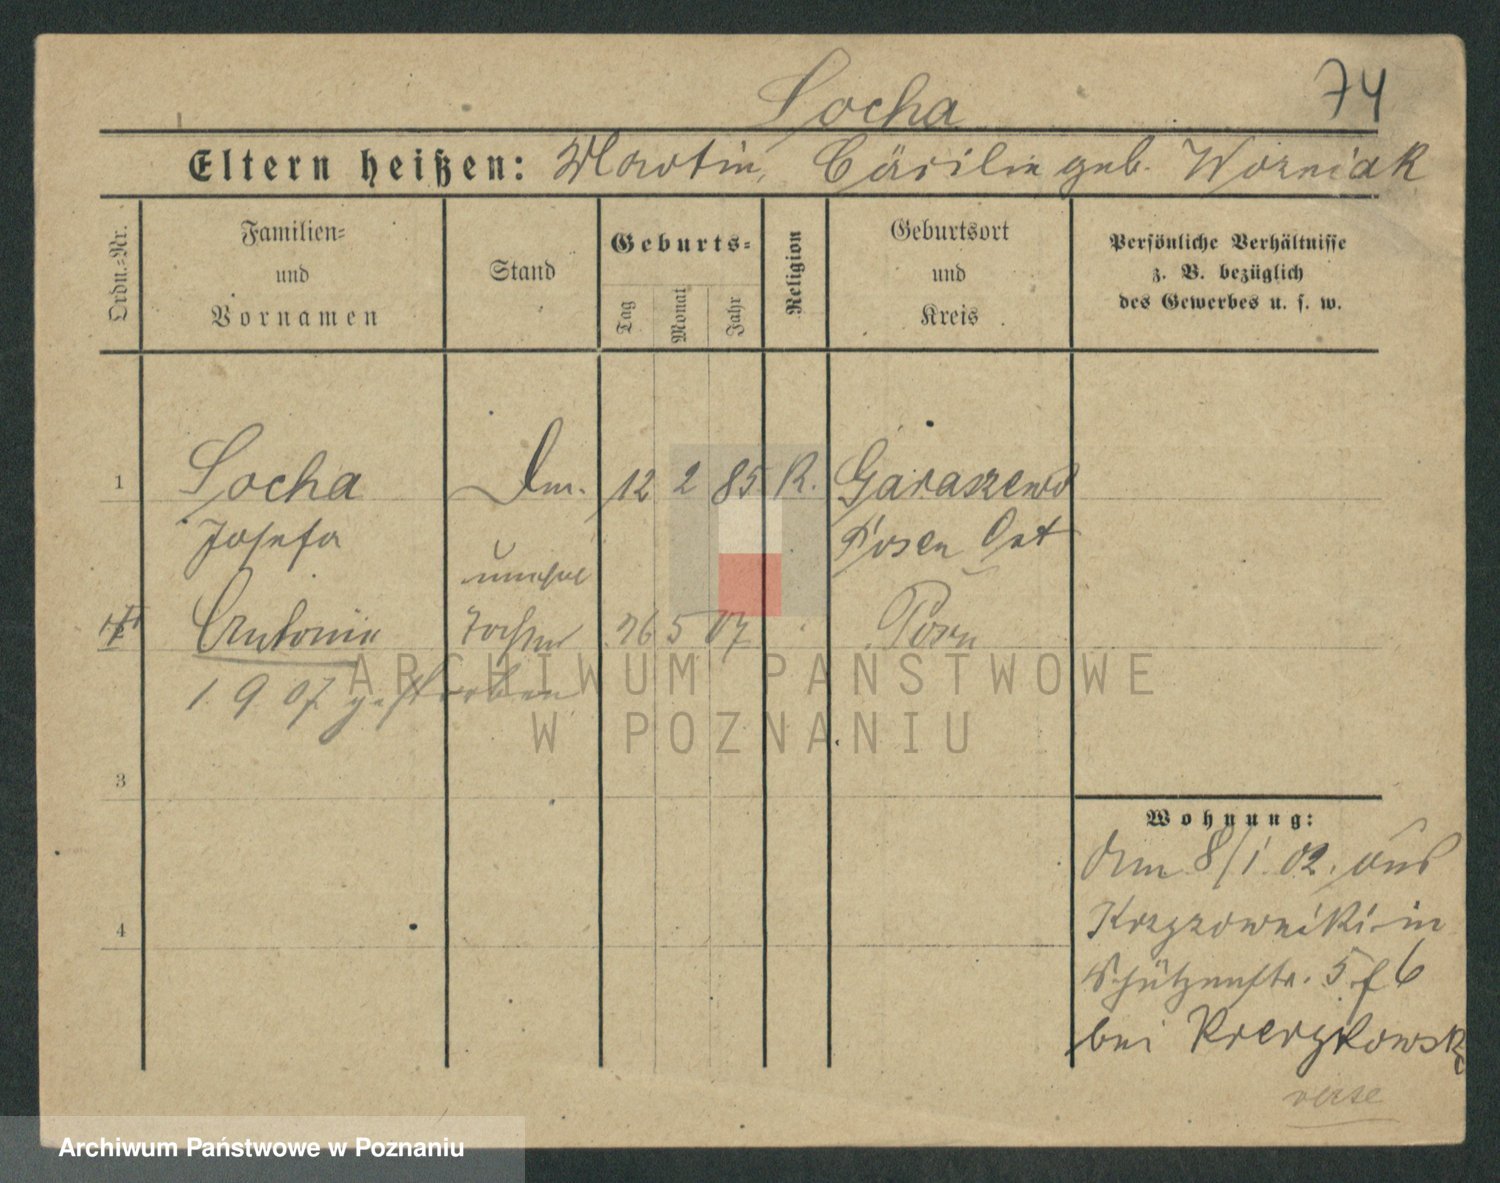 Socha
74
Eltern heißen: Martin, Cäcilie geb. Wozniak
Ordn.-Nr.
Familien-
und
Vornamen
Stand
Geburts-
Tag
Monat
Jahr
Religion
Geburtsort
und
Kreis
Persönliche Verhältnisse
z. B. bezüglich
des Gewerbes u. s. w.
1 Socha 12 2 85 K. Garaszewo
Josefa Posen Ost
unehel
Antonie Tochter 26 5 07 Posen
1 9 07 gestorben
3
4
Wohnung:
Am 8/1. 02. aus
Krzyzowniki in
Schützenstr. 5 f 6
bei
verse
ARCHIWUM PAŃSTWOWE
W POZNANIU
Archiwum Państwowe w Poznaniu